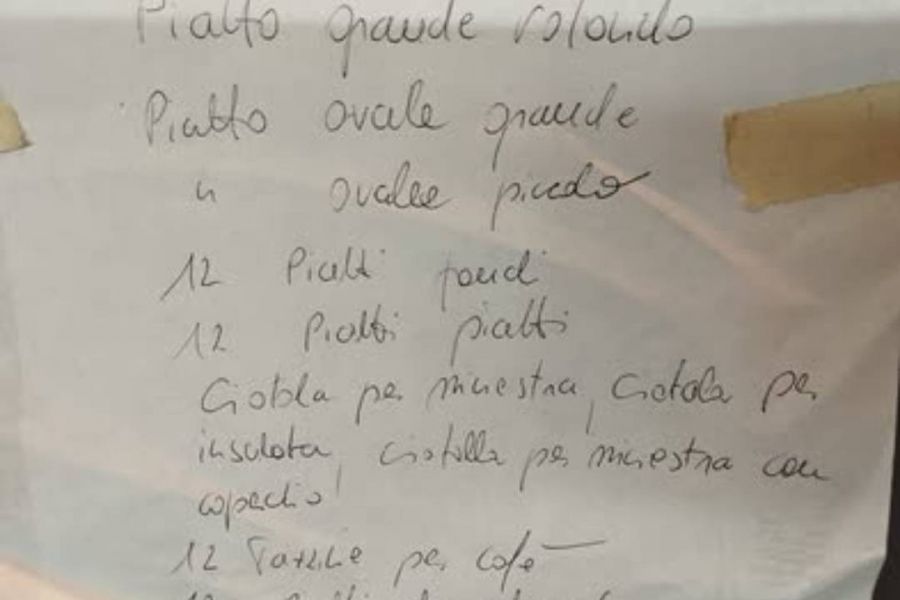 Piatto grande rotondo
Piatto ovale grande
" ovalee piccolo
12 Piatti fondi
12 Piatti piatti
Ciotola per minestra, Ciotola per
insalata, ciotolla per minestra con
copechio
12 Tazzine per cafe
12